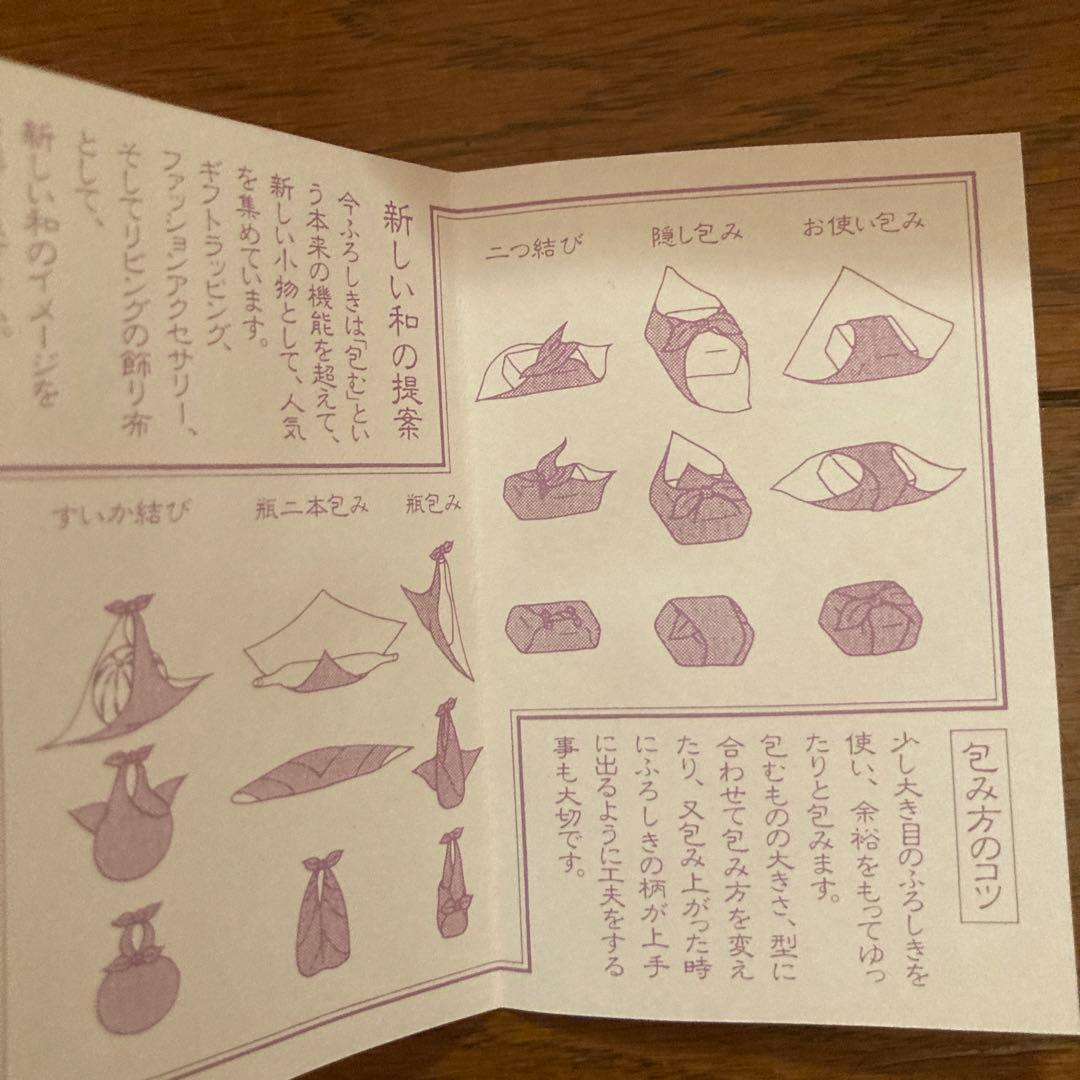 お使い包み
隠し包み
二つ結び
包み方のコツ
少し大き目のふろしきを
使い、余裕をもってゆっ
たりと包みます。
包むものの大きさ、型に
合わせて包み方を変え
たり、又包み上がった時
にふろしきの柄が上手
に出るように工夫をする
事も大切です。
新しい和の提案
今ふろしきは「包む」とい
う本来の機能を超えて、
新しい小物として、人気
を集めています。
ギフトラッピング、
ファッションアクセサリー、
そしてリビングの飾り布
として、
新しい和のイメージを
瓶包み
瓶二本包み
すいか結び